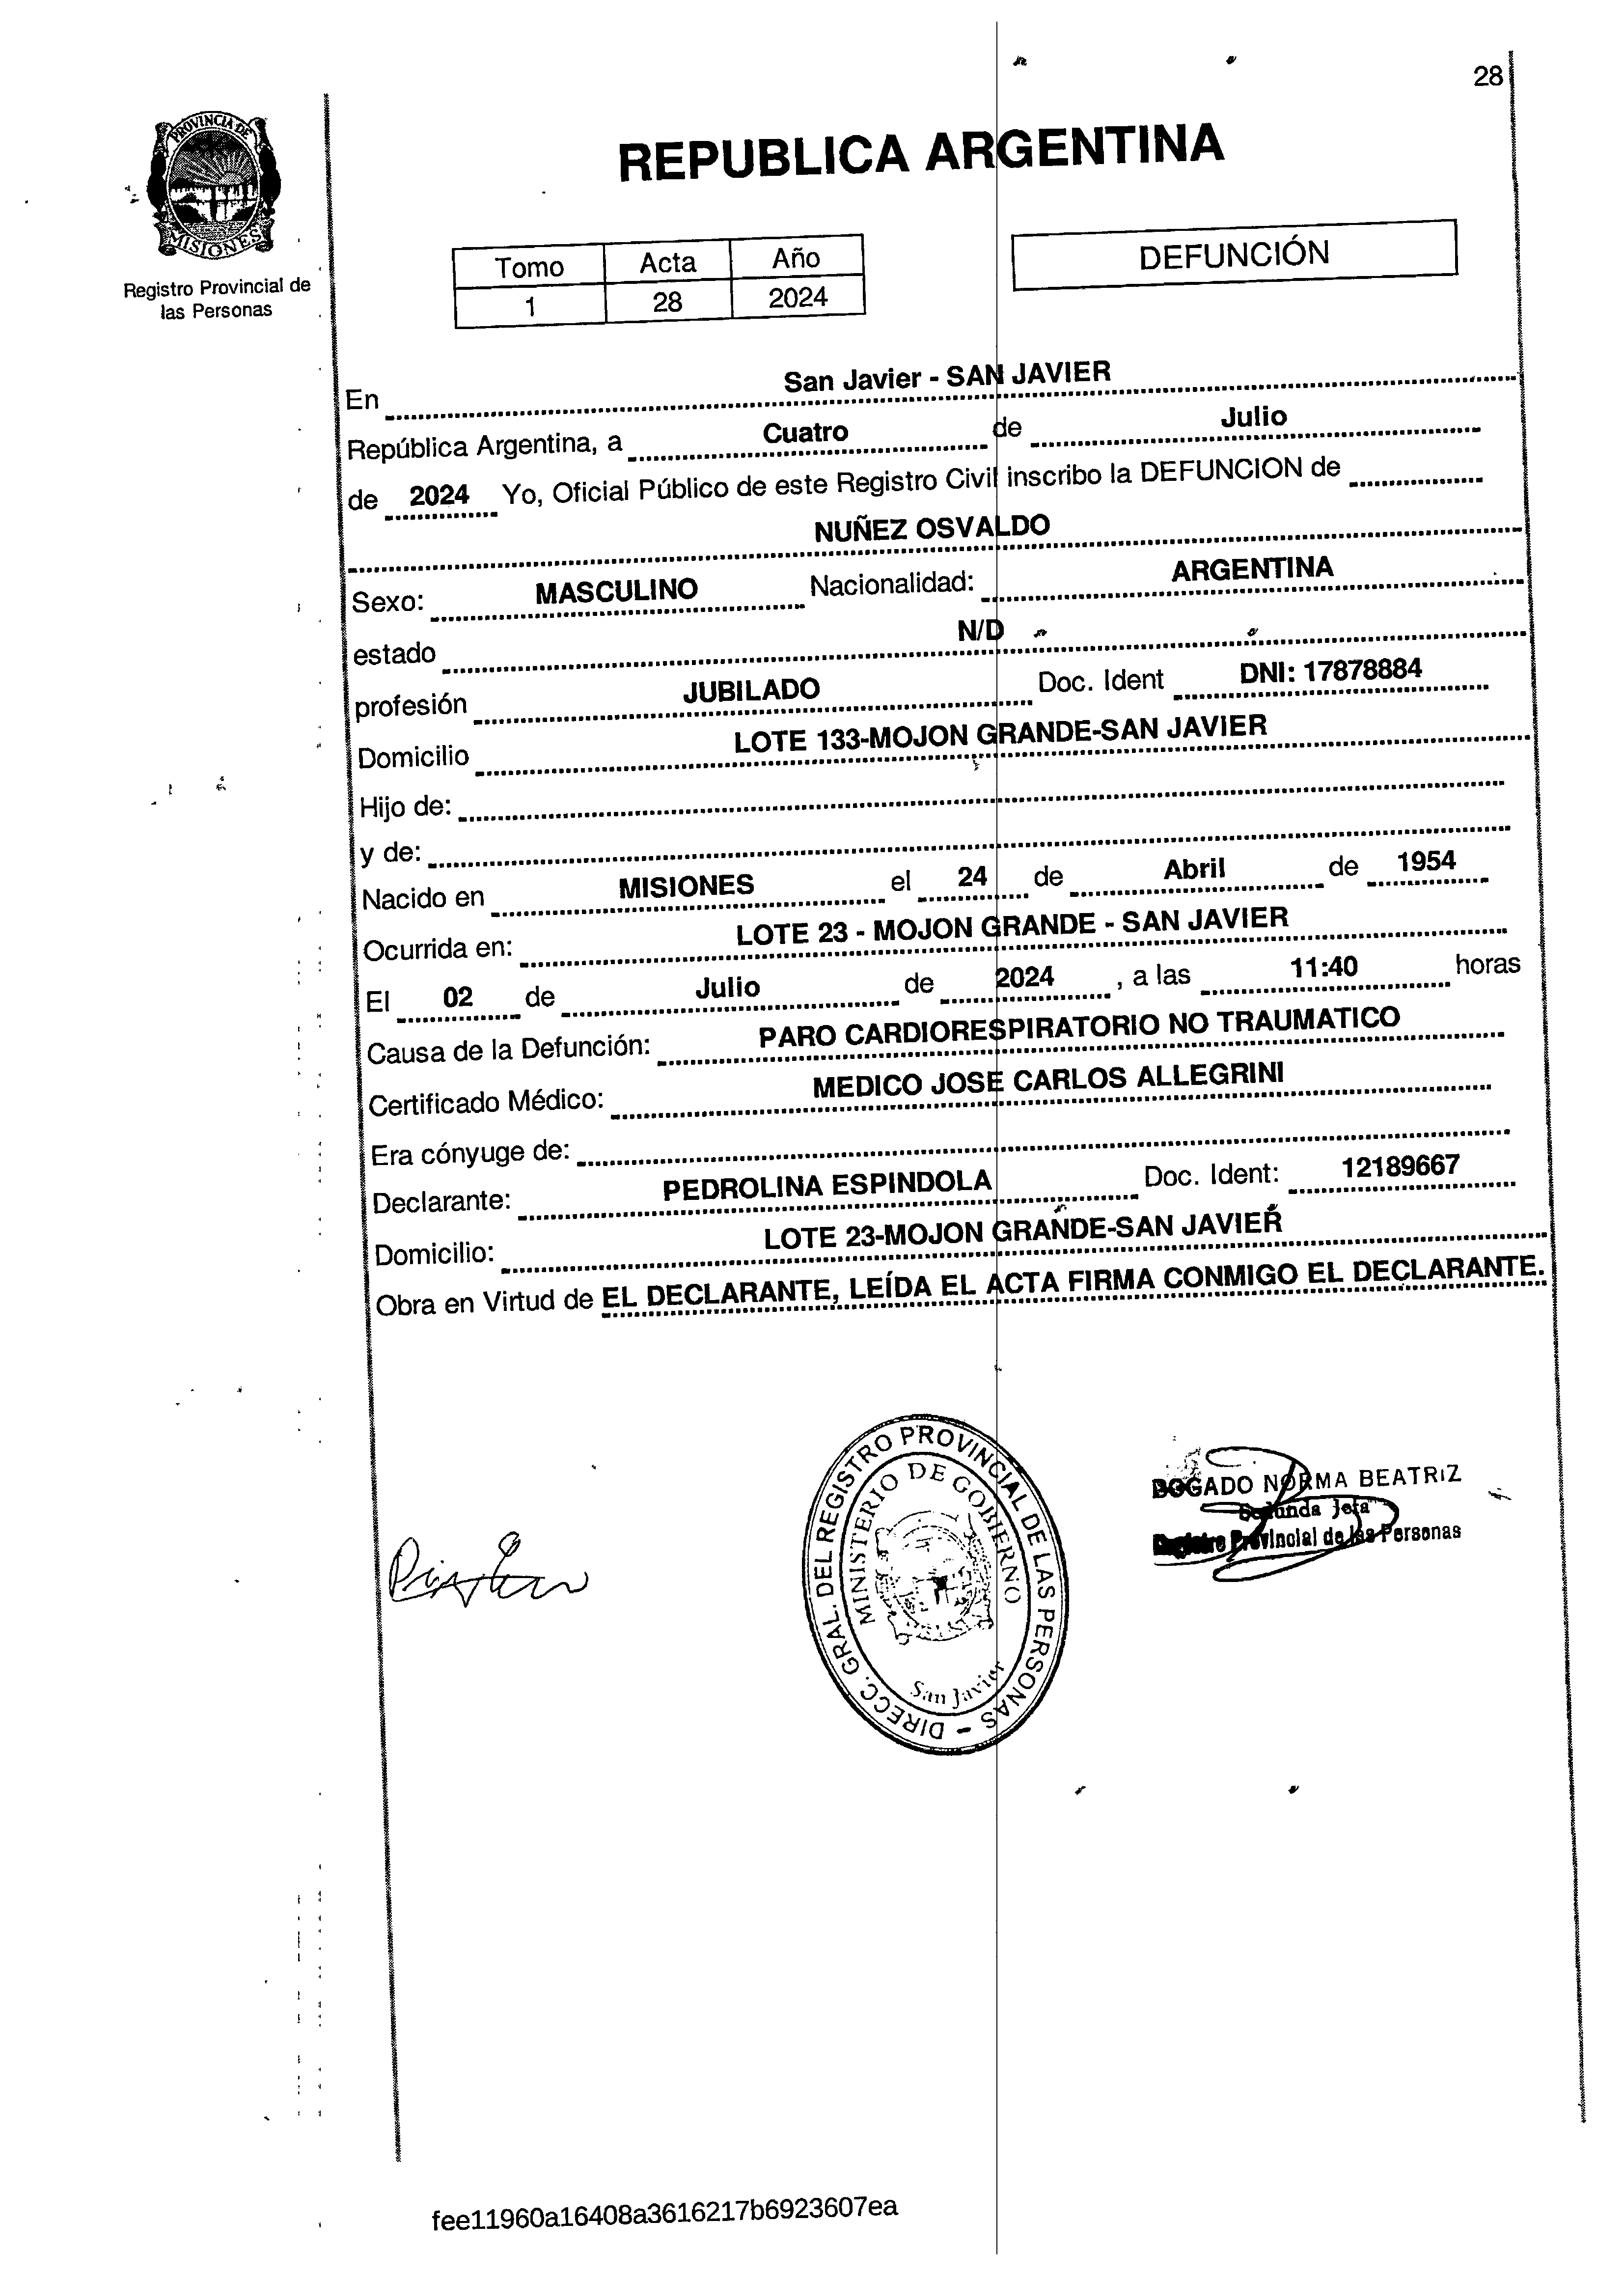 28
PROVINCIA DE
MISIONES
Registro Provincial de
las Personas
REPUBLICA ARGENTINA
Tomo Acta Año
1 28 2024
DEFUNCIÓN
En San Javier - SAN JAVIER
República Argentina, a Cuatro de Julio
de 2024 Yo, Oficial Público de este Registro Civil inscribo la DEFUNCION de
NUÑEZ OSVALDO
Sexo: MASCULINO Nacionalidad: ARGENTINA
estado N/D
profesión JUBILADO Doc. Ident DNI: 17878884
Domicilio LOTE 133-MOJON GRANDE-SAN JAVIER
Hijo de:
y de:
Nacido en MISIONES el 24 de Abril de 1954
Ocurrida en: LOTE 23 - MOJON GRANDE - SAN JAVIER
El 02 de Julio de 2024 , a las 11:40 horas
Causa de la Defunción: PARO CARDIORESPIRATORIO NO TRAUMATICO
Certificado Médico: MEDICO JOSE CARLOS ALLEGRINI
Era cónyuge de:
Declarante: PEDROLINA ESPINDOLA Doc. Ident: 12189667
Domicilio: LOTE 23-MOJON GRANDE-SAN JAVIER
Obra en Virtud de EL DECLARANTE, LEÍDA EL ACTA FIRMA CONMIGO EL DECLARANTE.
DIRECC. GRAL. DEL REGISTRO PROVINCIAL DE LAS PERSONAS -
MINISTERIO DE GOBIERNO
San Javier
BOGADO NORMA BEATRIZ
Segunda Jefa
Registro Provincial de las Personas
fee11960a16408a3616217b6923607ea